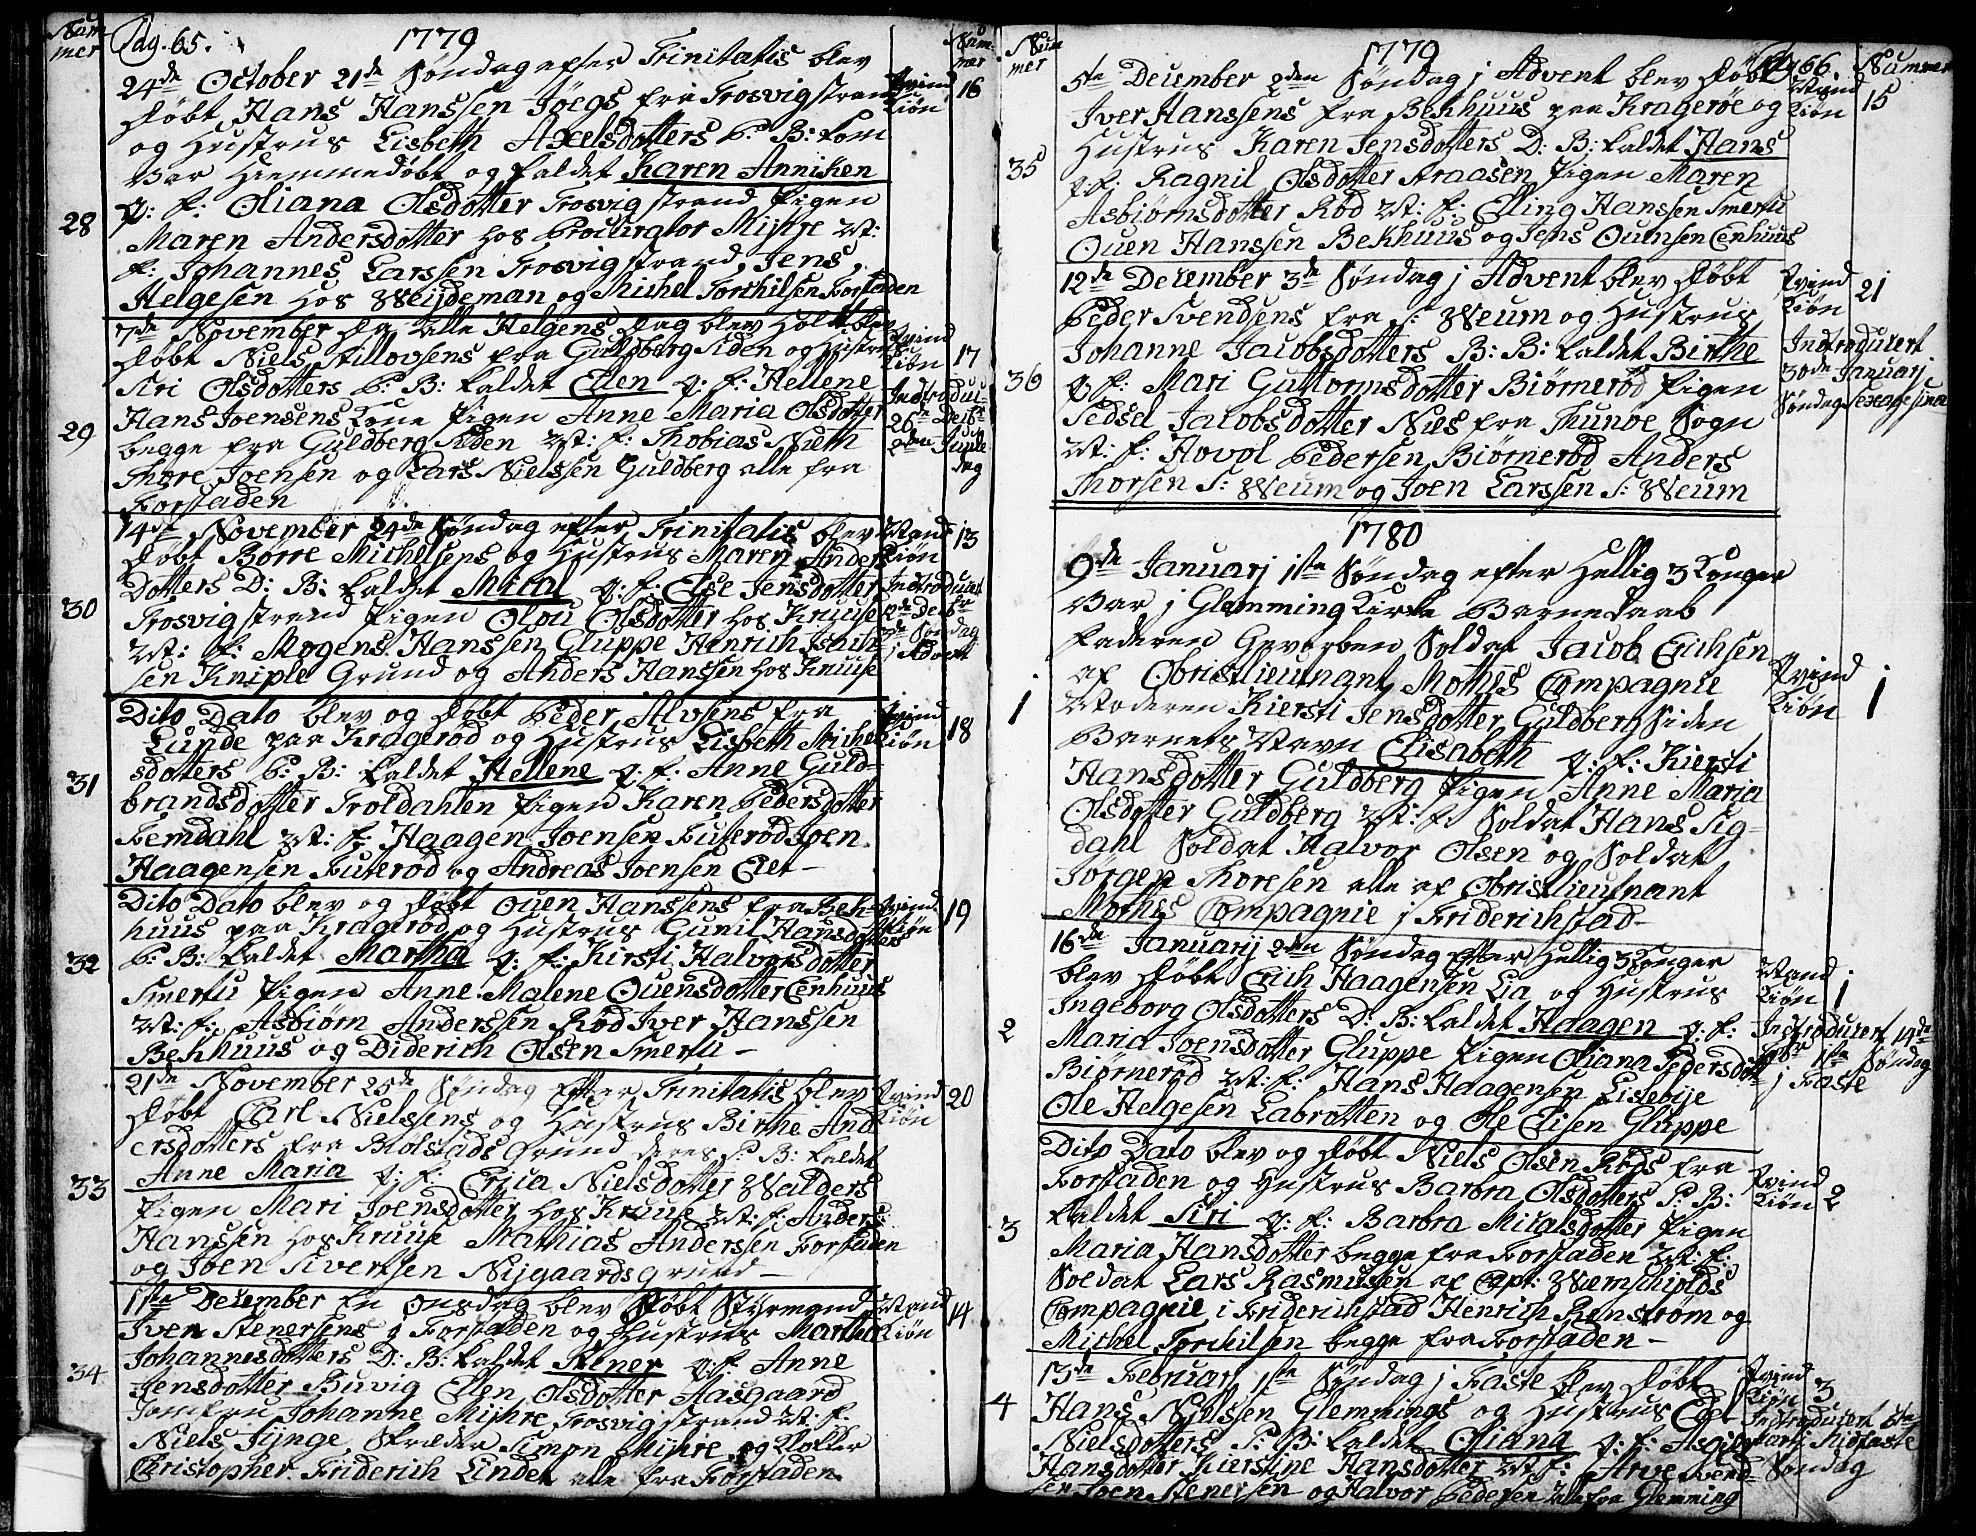 Num-
mer
Pag. 65.
1779
Num-
mer
24de October 21de Søndag efter Trinitatis blev
døbt Hans Hanssen Jøegs fra Trosvigstrand
og Hustrus Lisbeth Axelsdotters P: B: som
var hiemmedøbt og kaldet Karen Anniken
q: f: Oliana Olsdotter Trosvigstrand Pigen
Maren Andersdotter hos Procurator Mijhre M:
f: Johannes Larssen Trosvigstrand, Jens
Helgesen hos Weijdeman og Michel Torchilsen Forstaden
28
Qvind
Kiøn
16
7de November da alle Helgens Dag blev holdt blev
døbt Niels Killovsens fra Guldberg Siden og Hustrus
Siri Olsdotters P: B: kaldet Ellen q: f: Hellene
Hans Joensens Kone Pigen Anne Maria Olsdotter
begge fra Guldberg Siden M: f: Thobias Nieth
Thore Joensen og Lars Nielssen Guldberg alle fra
Forstaden
29
Qvind
Kiøn
17
Introdu-
26de Decbr
2den Juule
dag
14de November 24de Søndag efter Trinitatis blev
døbt Børre Michelsens og Hustrus Maren Anders
Dotters D: B: kaldet Micael q: f: Else Jensdotter
Trosvigstrand Pigen Olou Olsdotter hos Kruuse
M: f: Mogens Hanssen Gluppe Henrich Isach-
sen Kniple Grund og Anders Hanssen hos Kruuse
30
Mand
Kiøn
13
Introducert
Decbr
Søndag
j Advent
Dito Dato blev og døbt Peder Alvsens fra
Lunde paa Kragerød og Hustrus Lisbeth Michel
sdotters P: B: kaldet Hellene q: f: Anne Guld-
brandsdotter Troldahlen Pigen Karen Pedersdotter
Femdahl M: f: Haagen Joensen Futerød Joen
Haagensen Futerød og Andreas Joensen Elet-
31
Qvind
Kiøn
18
Dito Dato blev og døbt Ouen Hanssens fra Bek-
huus paa Kragerød og Hustrus Gunil Hansdotters
P: B: kaldet Martha q: f: Kirsti Halvorsdotter
Smertu Pigen Anne Malene Ouensdotter Eenhuus
M: f: Asbiørn Anderssen Rød Iver Hanssen
Bekhuus og Diderich Olsen Smertu -
32
Qvind
Kiøn
19
21de November 25de Søndag efter Trinitatis blev
døbt Carl Nielssens og Hustrus Birthe And
ersdotters fra Blolstads Grund deres P: B: kaldet
Anne Maria q: f: Ericia Nielsdotter Walders
Pigen Mari Joensdotter hos Kruuse M: f: Anders
Hanssen hos Kruuse Mathias Andersen Forstaden
og Joen Sivertsen Nijgaards grund-
33
Qvind
Kiøn
20
11te December En Onsdag blev døbt Styrmand
Iven Stenersens j Forstaden og Hustrus Martha
Johannesdotters D: B: kaldet Stener q: f: Anne
Jensdotter Buvig Ellen Olsdotter Aasgaard
Jomfru Johanne Mijhre Trosvigstrand M: f:
Niels Jijnge, Skræder Simon Mijhre og Klokker
Christopher Friderich Lindet alle fra Forstaden
34
Mand
Kiøn
14
Num
mer
1779
Pag 66.
Nummer
5te December 2den Søndag j Advent blev døbt
Iver Hanssens fra Bekhuus paa Kragerøe og
Hustrus Karen Jensdotters D: B: kaldet Hans
q: f: Ragnil Olsdotter Araasen Pigen Maren
Asbiørnsdotter Rød M: f: Elling Hanssen Smertu
Ouen Hanssen Bekhuus og Jens Ouensen Eenhuus
35
Mand
Kiøn
15
12de December 3de Søndag j Advent blev døbt
Peder Svendsens fra S: Weum og Hustrus
Johanne Jacobsdotters P: B: kaldet Birthe
q: f: Mari Guttormsdotter Biørnerød Pigen
Sedsel Jacobsdotter Nies fra Thunøe Sogn
M: f: Hovol Pedersen Biørnerød Anders
Thorsen S: Weum og Joen Larssen S: Weum
36
Qvind
Kiøn
21
Introducert
30de Januarj
Søndag Sexagesima
1780
9de Januarj 1ste Søndag efter Hellig 3 Konger
var j Glemming Kirke Barnedaab
Faderen Gevorben Soldat Jacob Erichsen
af Obristlieutnant Mothes Compagnie
Moderen Kiersti Jensdotter Guldberg Siden
Barnets Navn Elisabeth q: f: Kiersti
Hansdotter Guldberg Pigen Anne Maria
Olsdotter Guldberg M: f: Soldat Hans Sig-
dahl Soldat Halvor Olsen og Soldat
Jørgen Thoresen alle af Obristlieutnant
Mothes Compagnie j Friderichstad-
1
Qvind
Kiøn
1
16de Januarij 2den Søndag efter Hellig 3 Konger
blev døbt Erich Haagensen Lia og Hustrus
Ingeborg Olsdotters D: B: kaldet Haagen q: f:
Maria Joensdotter Gluppe Pigen Oliana Pedersdott
Biørnerød M: f: Hans Haagensen Lislebije
Ole Helgesen Labrotten og Ole Elisen Gluppe
2
Mand
Kiøn
1
Introducert 14de
Febr 1ste Søndag
j Faste
Dito Dato blev og døbt Niels Olsen Røds fra
Forstaden og Hustrus Barbra Olsdotters P: B:
kaldet Siri q: f: Barbra Micalsdotter Pigen
Maria Hansdotter begge fra Forstaden M: f:
Soldat Lars Rasmussen af Capt: Wemschiolds
Compagnie i Friderichstad Henrich Renstrøm og
Michel Torchilsen begge fra Forstaden -
3
Qvind
Kiøn
2
13de Februarj 1ste Søndag j Faste blev døbt
Hans Nielssen Glemmings og Hustrus Else
Nielsdotters P: B: kaldet Oliana q: f: Asgier
Hansdotter Kierstine Hansdotter M: f: Arve Svend-
sen Joen Stenersen og Halvor Pedersen alle fra Glemming
4
Qvind
Kiøn
3
Introducert 5te
Martj Midfaste
Søndag